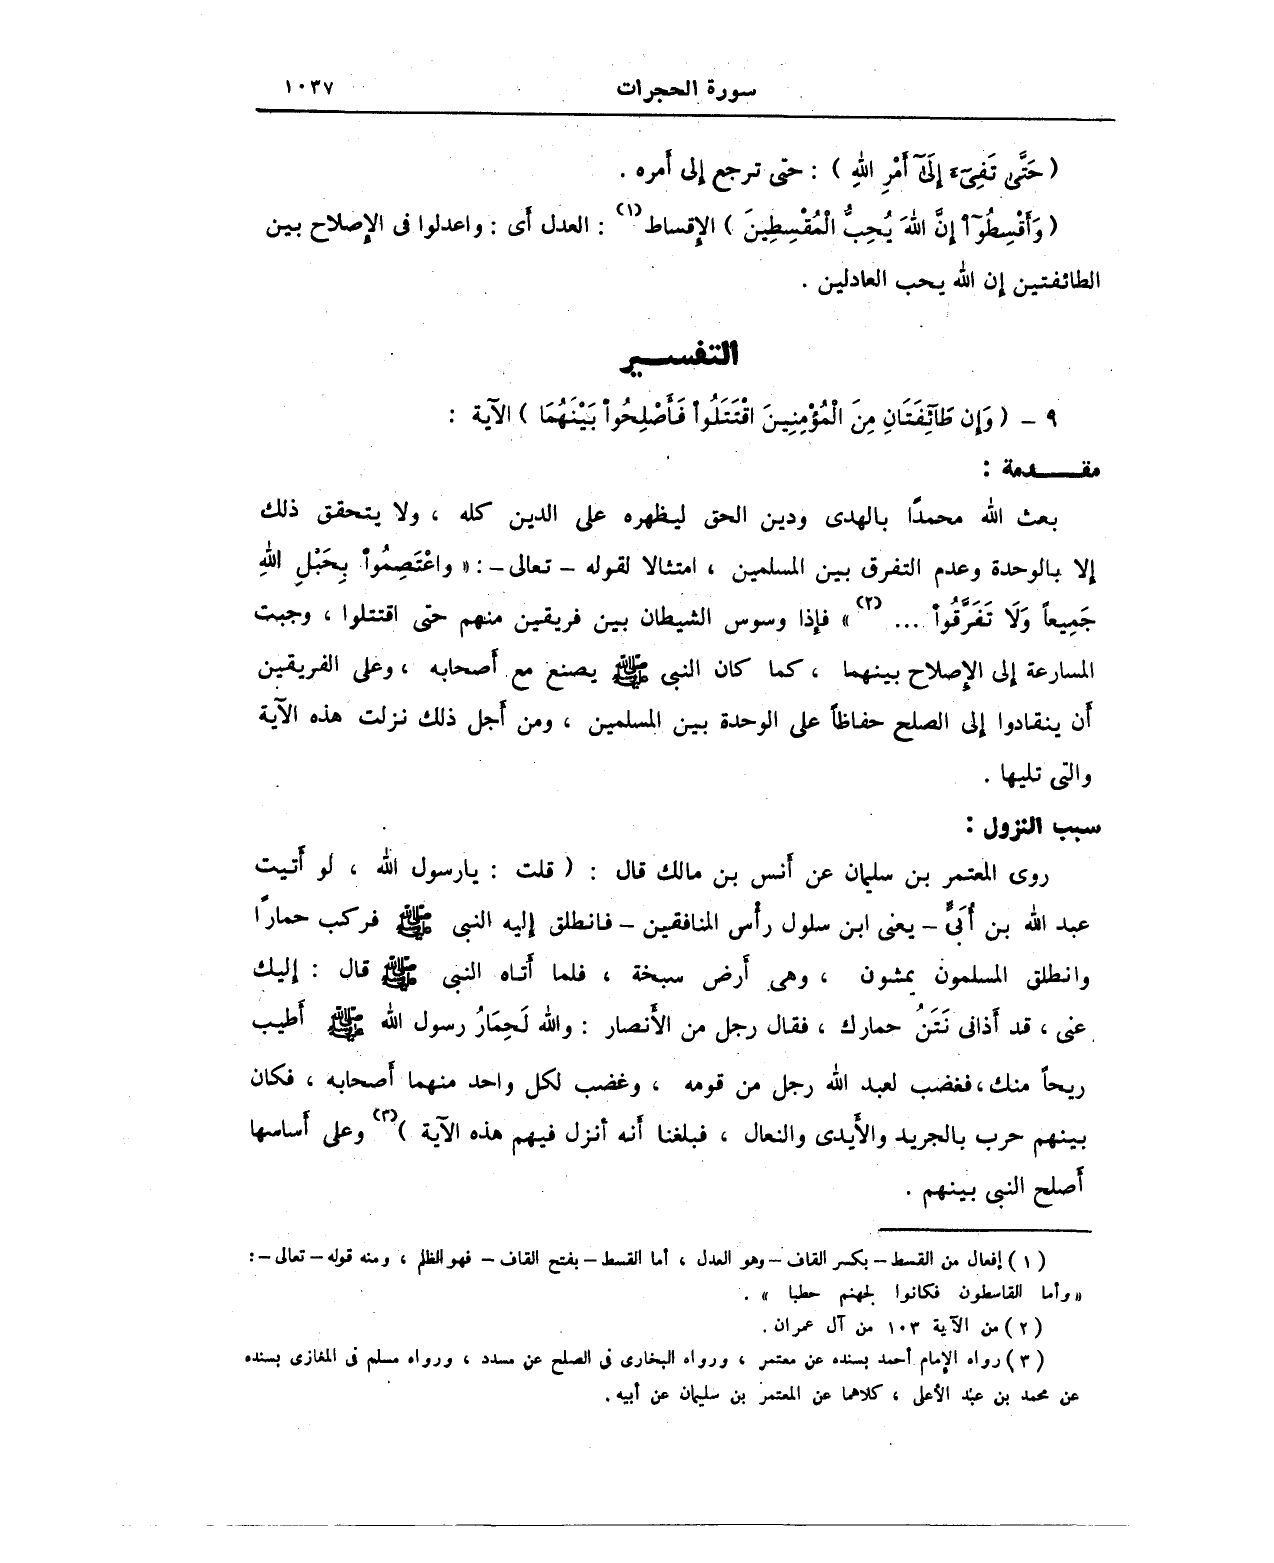 سورة الحجرات ١٠٣٧
( حَتَّى تَفِىٓءَ إِلَىٰٓ أَمْرِ اللهِ ) : حتى ترجع إلى أمره .
( وَأَقْسِطُوٓاْ إِنَّ اللهَ يُحِبُّ الْمُقْسِطِينَ ) الإقساط(١) : العدل أى : واعدلوا فى الإصلاح بين
الطائفتين إن الله يحب العادلين .
التفسـير
٩ – ( وَإِن طَآئِفَتَانِ مِنَ الْمُؤْمِنِينَ اقْتَتَلُواْ فَأَصْلِحُواْ بَيْنَهُمَا ) الآية :
مقـــدمة :
بعث الله محمدًا بالهدى ودين الحق ليظهره على الدين كله ، ولا يتحقق ذلك
إلا بالوحدة وعدم التفرق بين المسلمين ، امتثالا لقوله – تعالى – : « واعْتَصِمُواْ بِحَبْلِ اللهِ
جَمِيعاً وَلَا تَفَرَّقُواْ ... (٢) » فإذا وسوس الشيطان بين فريقين منهم حتى اقتتلوا ، وجبت
المسارعة إلى الإصلاح بينهما ، كما كان النبى ﷺ يصنع مع أصحابه ، وعلى الفريقين
أن ينقادوا إلى الصلح حفاظاً على الوحدة بين المسلمين ، ومن أجل ذلك نزلت هذه الآية
والتى تليها .
سبب النزول :
روى المعتمر بن سليمان عن أنس بن مالك قال : ( قلت : يارسول الله ، لو أتيت
عبد الله بن أُبَىٍّ – يعنى ابن سلول رأس المنافقين – فانطلق إليه النبى ﷺ فركب حمارًا
وانطلق المسلمون يمشون ، وهى أرض سبخة ، فلما أتاه النبى ﷺ قال : إليك
عنى ، قد أذانى نَتَنُ حمارك ، فقال رجل من الأنصار : والله لَحِمَارُ رسول الله ﷺ أطيب
ريحاً منك ، فغضب لعبد الله رجل من قومه ، وغضب لكل واحد منهما أصحابه ، فكان
بينهم حرب بالجريد والأيدى والنعال ، فبلغنا أنه أنزل فيهم هذه الآية )(٣) وعلى أساسها
أصلح النبى بينهم .
( ١ ) إفعال من القسط – بكسر القاف – وهو العدل ، أما القسط – بفتح القاف – فهو الظلم ، ومنه قوله – تعالى – :
« وأما القاسطون فكانوا لجهنم حطبا » .
( ٢ ) من الآية ١٠٣ من آل عمران .
( ٣ ) رواه الإمام أحمد بسنده عن معتمر ، ورواه البخارى فى الصلح عن مسدد ، ورواه مسلم فى المغازى بسنده
عن محمد بن عبد الأعلى ، كلاهما عن المعتمر بن سليمان عن أبيه .